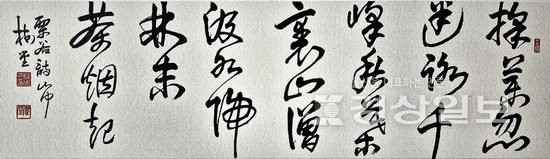 採藥忽
迷路千
峰秋葉
裏山僧
汲水歸
林末
茶烟起
栗谷詩 山中
경상일보